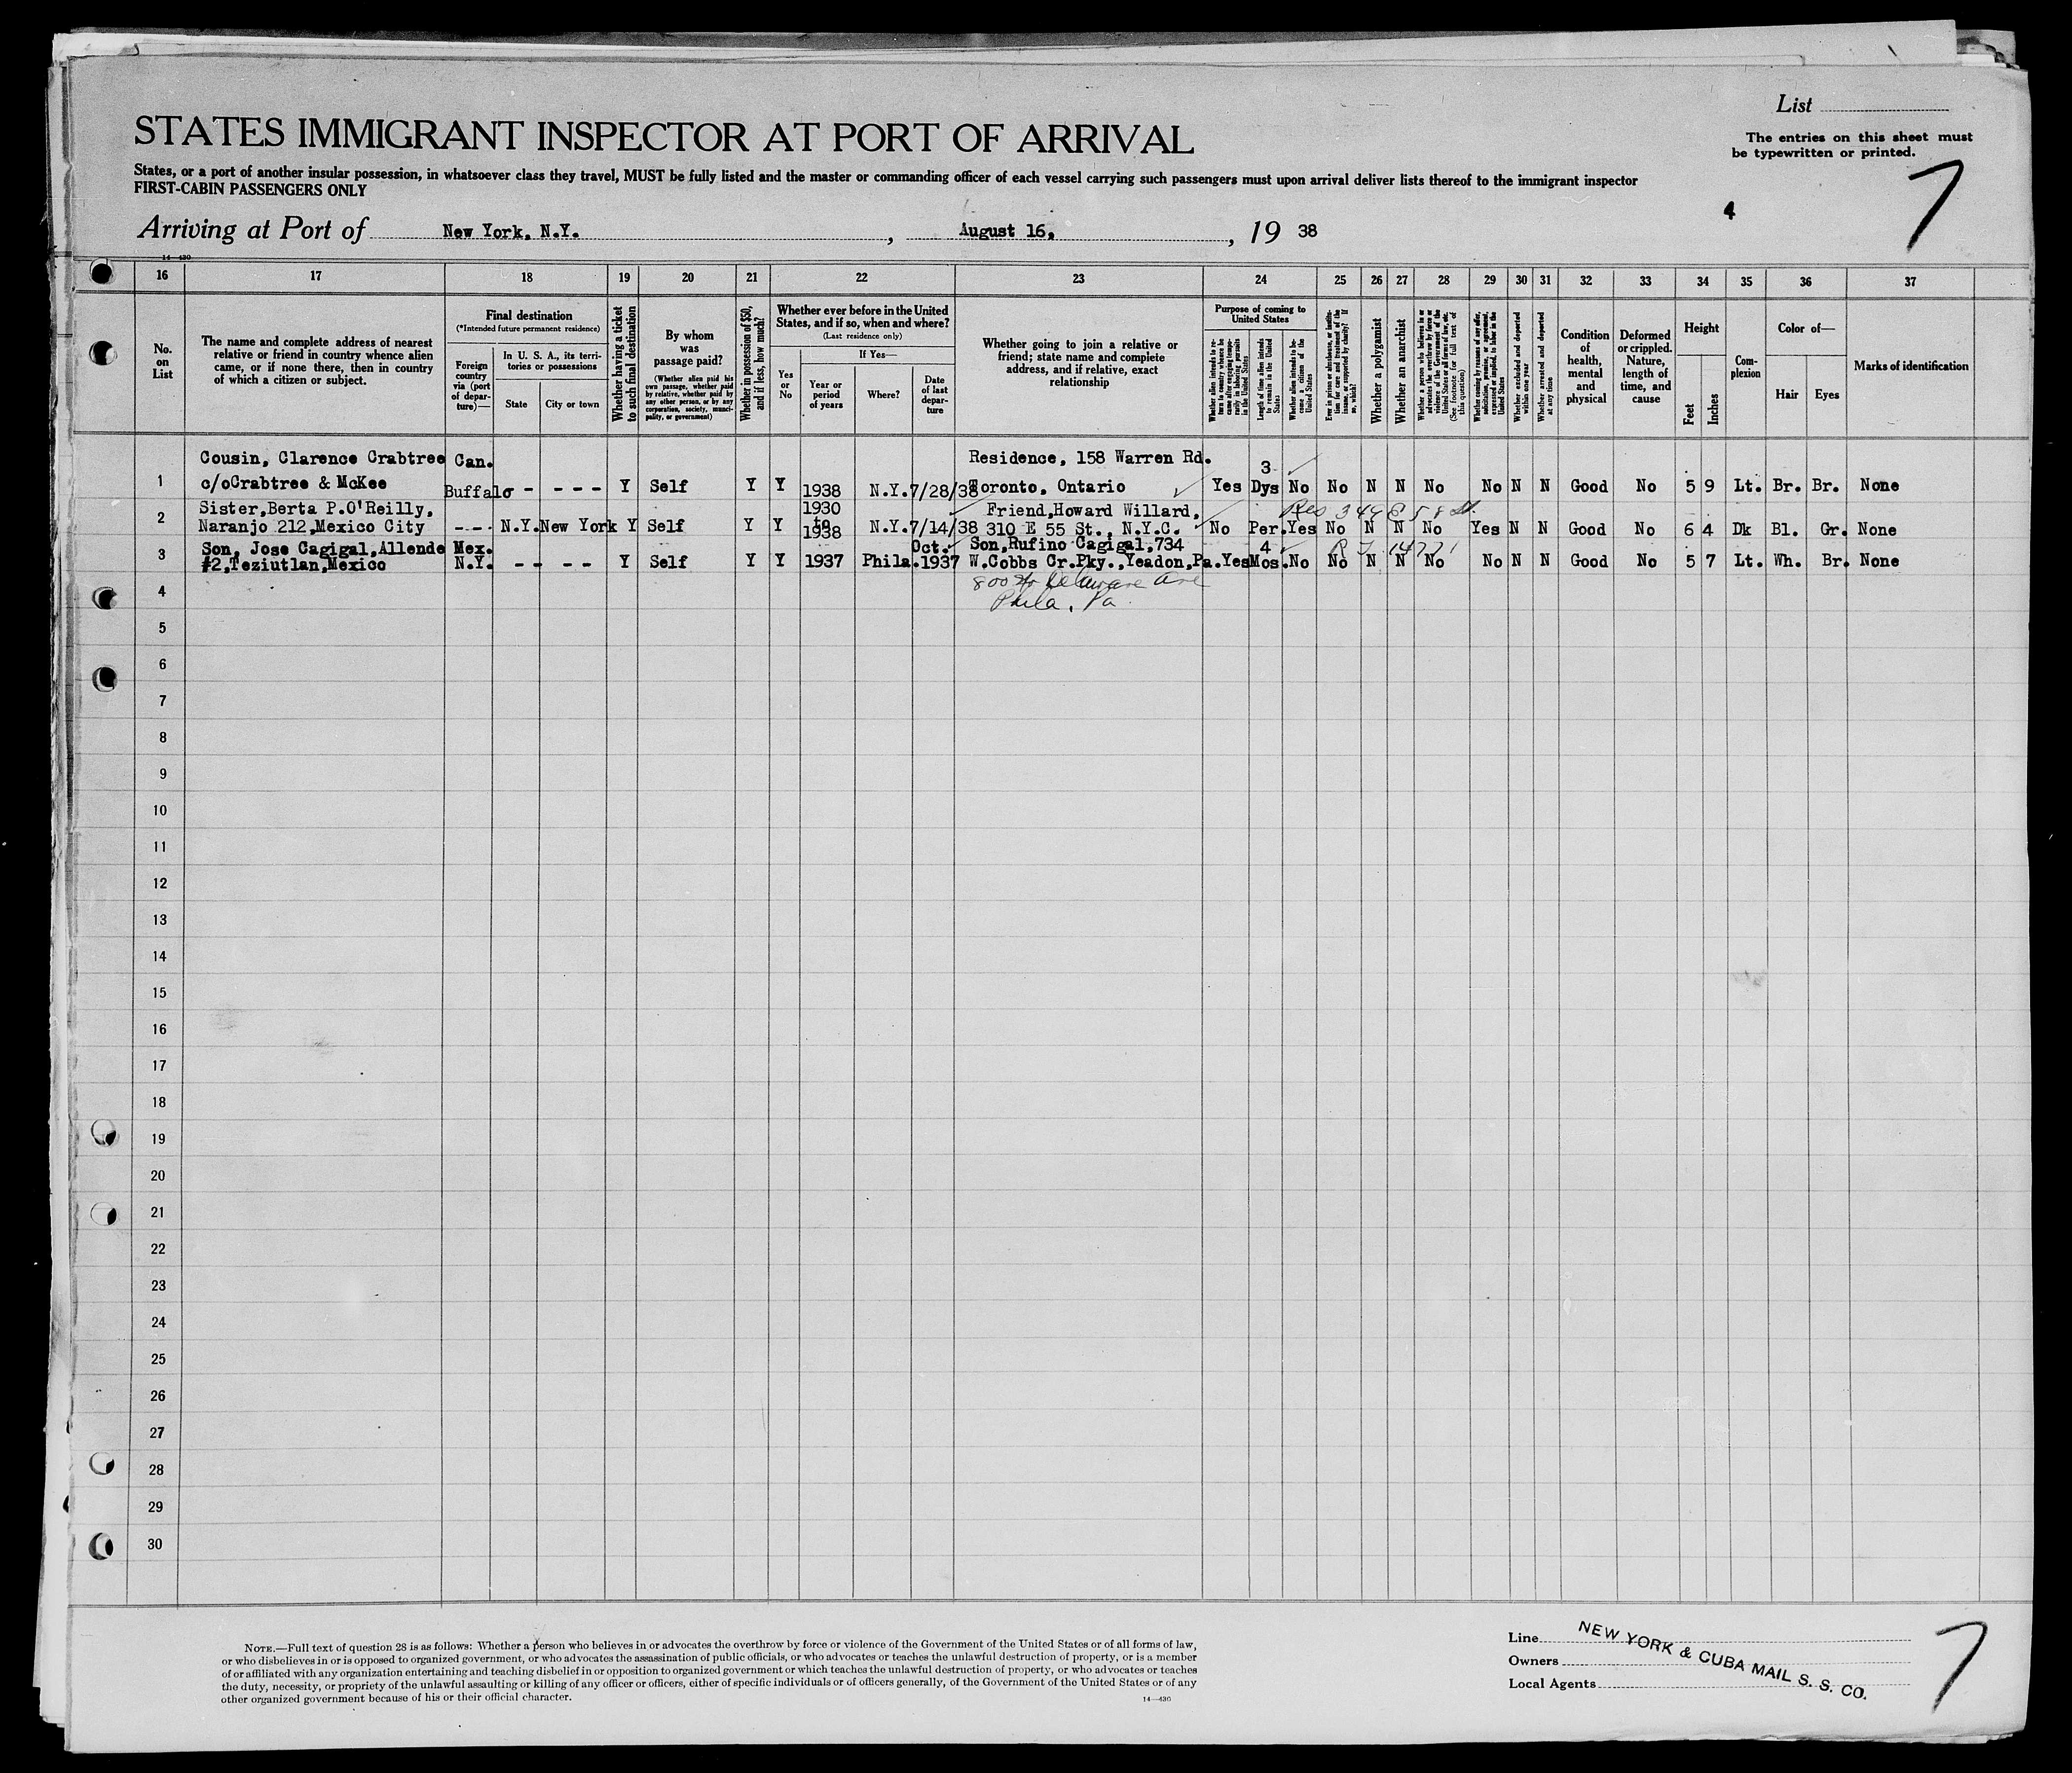 List
STATES IMMIGRANT INSPECTOR AT PORT OF ARRIVAL
The entries on this sheet must
be typewritten or printed.
States, or a port of another insular possession, in whatsoever class they travel, MUST be fully listed and the master or commanding officer of each vessel carrying such passengers must upon arrival deliver lists thereof to the immigrant inspector
FIRST-CABIN PASSENGERS ONLY
4
7
Arriving at Port of New York, N.Y. , August 16, , 19 38
14—430
16 17 18 19 20 21 22 23 24 25 26 27 28 29 30 31 32 33 34 35 36 37
No.
on
List
The name and complete address of nearest
relative or friend in country whence alien
came, or if none there, then in country
of which a citizen or subject.
Final destination
(*Intended future permanent residence)
Foreign
country
via (port
of depar-
ture)—
In U. S. A., its terri-
tories or possessions
State
City or town
Whether having a ticket
to such final destination
By whom
was
passage paid?
(Whether alien paid his
own passage, whether paid
by relative, whether paid by
any other person, or by any
corporation, society, munici-
pality, or government)
Whether in possession of $50,
and if less, how much?
Whether ever before in the United
States, and if so, when and where?
(Last residence only)
Yes
or
No
If Yes—
Year or
period
of years
Where?
Date
of last
depar-
ture
Whether going to join a relative or
friend; state name and complete
address, and if relative, exact
relationship
Purpose of coming to
United States
Whether alien intends to re-
turn to country whence he
came after engaging tempo-
rarily in laboring pursuits
in the United States
Length of time alien intends
to remain in the United
States
Whether alien intends to be-
come a citizen of the
United States
Ever in prison or almshouse, or institu-
tion for care and treatment of the
insane, or supported by charity? If
so, which?
Whether a polygamist
Whether an anarchist
Whether a person who believes in or
advocates the overthrow by force or
violence of the Government of the
United States or all forms of law, etc.
(See footnote for full text of
this question)
Whether coming by reason of any offer,
solicitation, promise, or agreement,
expressed or implied, to labor in the
United States
Whether excluded and deported
within one year
Whether arrested and deported
at any time
Condition
of
health,
mental
and
physical
Deformed
or crippled.
Nature,
length of
time, and
cause
Height
Feet
Inches
Com-
plexion
Color of—
Hair
Eyes
Marks of identification
Cousin, Clarence Crabtree Can. Residence, 158 Warren Rd. 3
1 c/oCrabtree & McKee Buffalo - - - - - Y Self Y Y 1938 N.Y. 7/28/38 Toronto, Ontario Yes Dys No No N N No No N N Good No 5 9 Lt. Br. Br. None
Sister,Berta P.O'Reilly, 1930 Friend,Howard Willard, Res 349 E 58 St.
2 Naranjo 212,Mexico City - - - N.Y. New York Y Self Y Y to 1938 N.Y. 7/14/38 310 E 55 St., N.Y.C. No Per. Yes No N N No Yes N N Good No 6 4 Dk Bl. Gr. None
Son, Jose Cagigal,Allende Mex. Oct. Son,Rufino Cagigal,734 4
3 #2,Teziutlan,Mexico N.Y. - - - - Y Self Y Y 1937 Phila. 1937 W.Cobbs Cr.Pky.,Yeadon,Pa. Yes Mos. No No N N No No N N Good No 5 7 Lt. Wh. Br. None
4 Delaware Ave
Phila, Pa.
5
6
7
8
9
10
11
12
13
14
15
16
17
18
19
20
21
22
23
24
25
26
27
28
29
30
NOTE.—Full text of question 28 is as follows: Whether a person who believes in or advocates the overthrow by force or violence of the Government of the United States or of all forms of law,
or who disbelieves in or is opposed to organized government, or who advocates the assassination of public officials, or who advocates or teaches the unlawful destruction of property, or is a member
of or affiliated with any organization entertaining and teaching disbelief in or opposition to organized government or which teaches the unlawful destruction of property, or who advocates or teaches
the duty, necessity, or propriety of the unlawful assaulting or killing of any officer or officers, either of specific individuals or of officers generally, of the Government of the United States or of any
other organized government because of his or their official character.
14—430
Line
Owners
Local Agents
NEW YORK & CUBA MAIL S. S. CO.
7